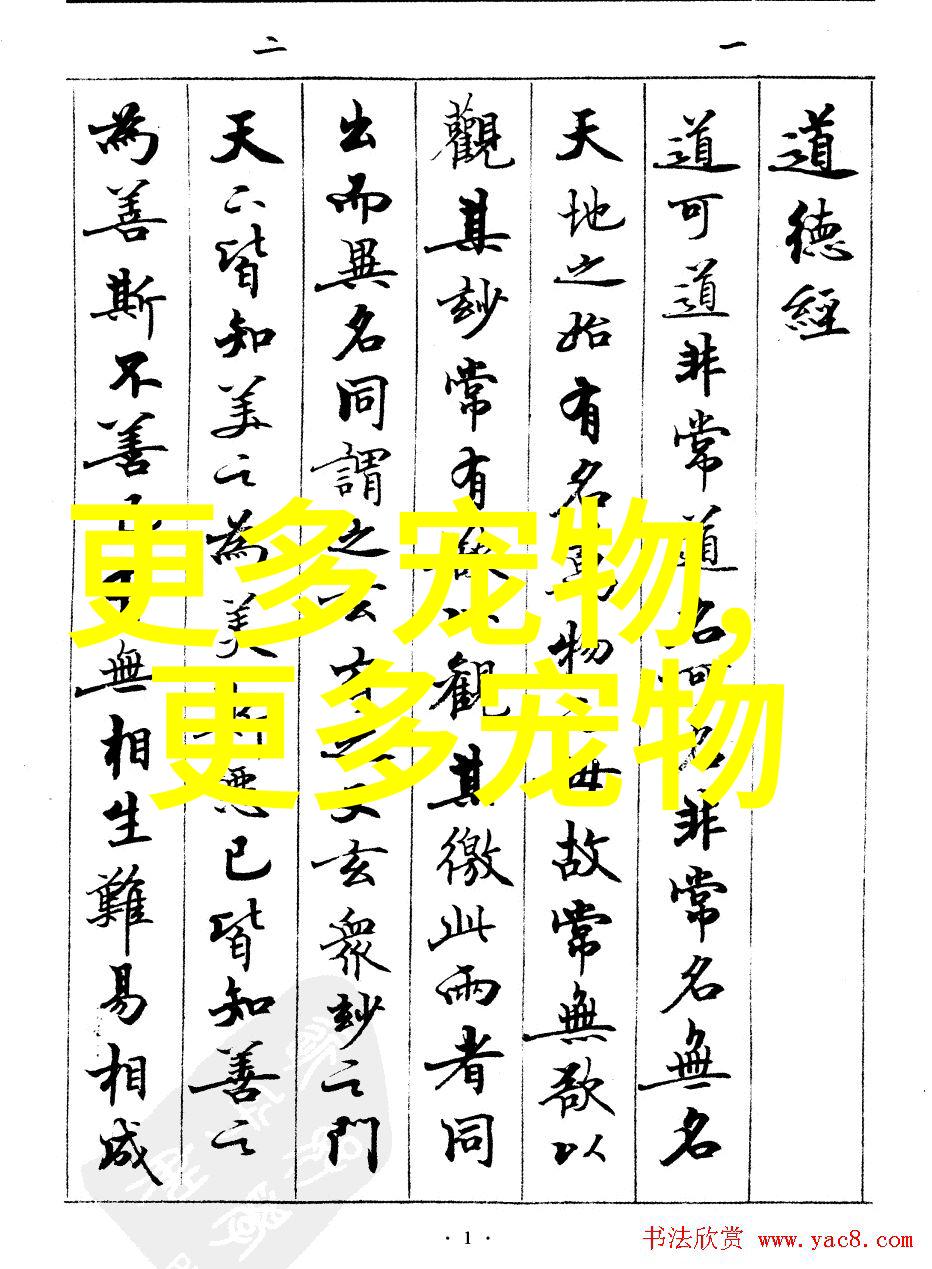 一
二
道德經
道可道非常道名可名非常名無名
天地之始有名萬物之母故常無欲以
觀其玅常有欲以觀其徼此兩者同
出而異名同謂之玄玄之又玄眾玅之門
天下皆知美之為美斯惡已皆知善之
為善斯不善無相生難易相成
更多宠物,
更多宠物
· 1 ·
书法欣赏 www.yac8.com